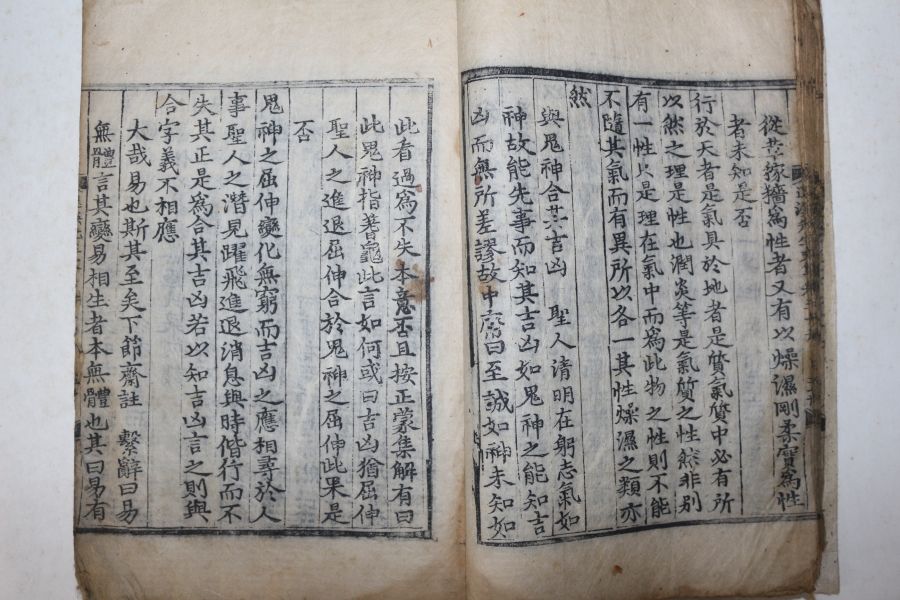 從革稼穡爲性者又有以燥濕剛柔實爲性
者未知是否
行於天者是氣具於地者是質氣質中必有所
以然之理是性也潤炎等是氣質之性然非別
有一性只是理在氣中而爲此物之性則不能
不隨其氣而有異所以各一其性燥濕之類亦
然
與鬼神合其吉凶 聖人清明在躬志氣如
神故能先事而知其吉凶如鬼神之能知吉
凶而無所差謬故中庸曰至誠如神未知如
此看過爲不失本意否且按正蒙集解有曰
此鬼神指蓍龜此言如何或曰吉凶猶屈伸
聖人之進退屈伸合於鬼神之屈伸此果是
否
鬼神之屈伸變化無窮而吉凶之應相尋於人
事聖人之潛見躍飛進退消息與時偕行而不
失其正是爲合其吉凶若以知吉凶言之則與
合字義不相應
大哉易也斯其至矣下節齋註 繫辭曰易
無體言其變易相生者本無體也其曰易有